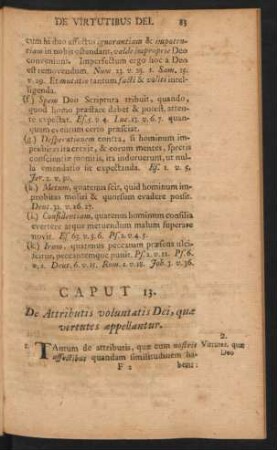 DE VIRTUTIBUS DEI. 83
cum hi duo affectus ignorantiam & impoten-
tiam in nobis ostendant, valde improprie Deo
conveniunt. Imperfectum ergo hoc a Deo
est removendum. Num. 23. v. 19. 1. Sam. 15.
v. 29. Et mutatio tantum facti & voliti intel-
ligenda.
(f.) Spem Deo Scriptura tribuit, quando,
quod homo præstare debet & potest, atten-
te expectat. Es. 5. v. 4. Luc. 13. v. 6. 7. quan-
quam eventum certo præsciat.
(g.) Desperationem contra, si hominum im-
probitas ita crevit, & eorum mentes, spretis
conscientiæ monitis, ita induruerunt, ut nulla
emendatio sit expectanda. Es. 1. v. 5.
Jer. 2. v. 30.
(h.) Metum, quatenus scit, quid hominum im-
probitas moliri & quousque evadere possit.
Deut. 32. v. 26. 27.
(i.) Confidentiam, quatenus hominum consilia
evertere atque metuendum malum superare
novit. Es. 63. v. 5. 6. Ps. 2. v. 4. 5.
(k.) Iram, quatenus peccatum præsens ulci-
scitur, peccatoremque punit. Ps. 2. v. 12. Ps. 6.
v. 2. Deut. 6. v. 15. Rom. 1. v. 18. Joh. 3. v. 36.
CAPUT 13.
De Attributis voluntatis Dei, quæ
virtutes appellantur.
2.
1. TAntum de attributis, quæ cum nostris Virtutes, quæ
affectibus quandam similitudinem ha- Deo
F 2 bent: